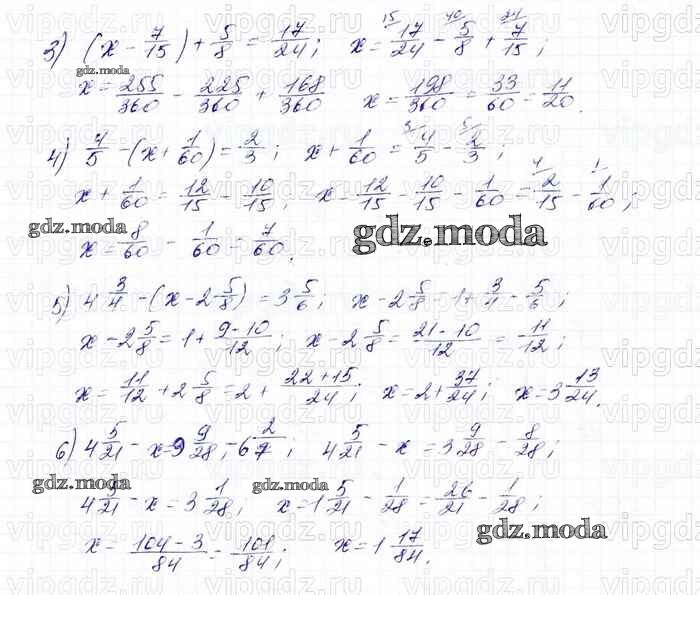 3) (x - 7/15) + 5/8 = 17/24; x = 17/24 - 5/8 + 7/15;
gdz.moda
x = 255/360 - 225/360 + 168/360 x = 198/360 = 33/60 = 11/20.
4) 4/5 - (x + 1/60) = 2/3; x + 1/60 = 4/5 - 2/3;
x + 1/60 = 12/15 - 10/15; x = 12/15 - 10/15 - 1/60 = 2/15 - 1/60;
gdz.moda gdz.moda
x = 8/60 - 1/60 = 7/60.
5) 4 3/4 - (x - 2 5/8) = 3 5/6; x - 2 5/8 = 1 + 3/4 - 5/6;
x - 2 5/8 = 1 + 9-10/12; x - 2 5/8 = 21-10/12 = 11/12;
x = 11/12 + 2 5/8 = 2 + 22+15/24; x = 2 + 37/24; x = 3 13/24.
6) 4 5/21 - x = 9 9/28 - 6 2/7; 4 5/21 - x = 3 9/28 - 8/28;
gdz.moda gdz.moda
4 5/21 - x = 3 1/28; x = 1 5/21 - 1/28 = 26/21 - 1/28;
gdz.moda
x = 104-3/84 = 101/84; x = 1 17/84.